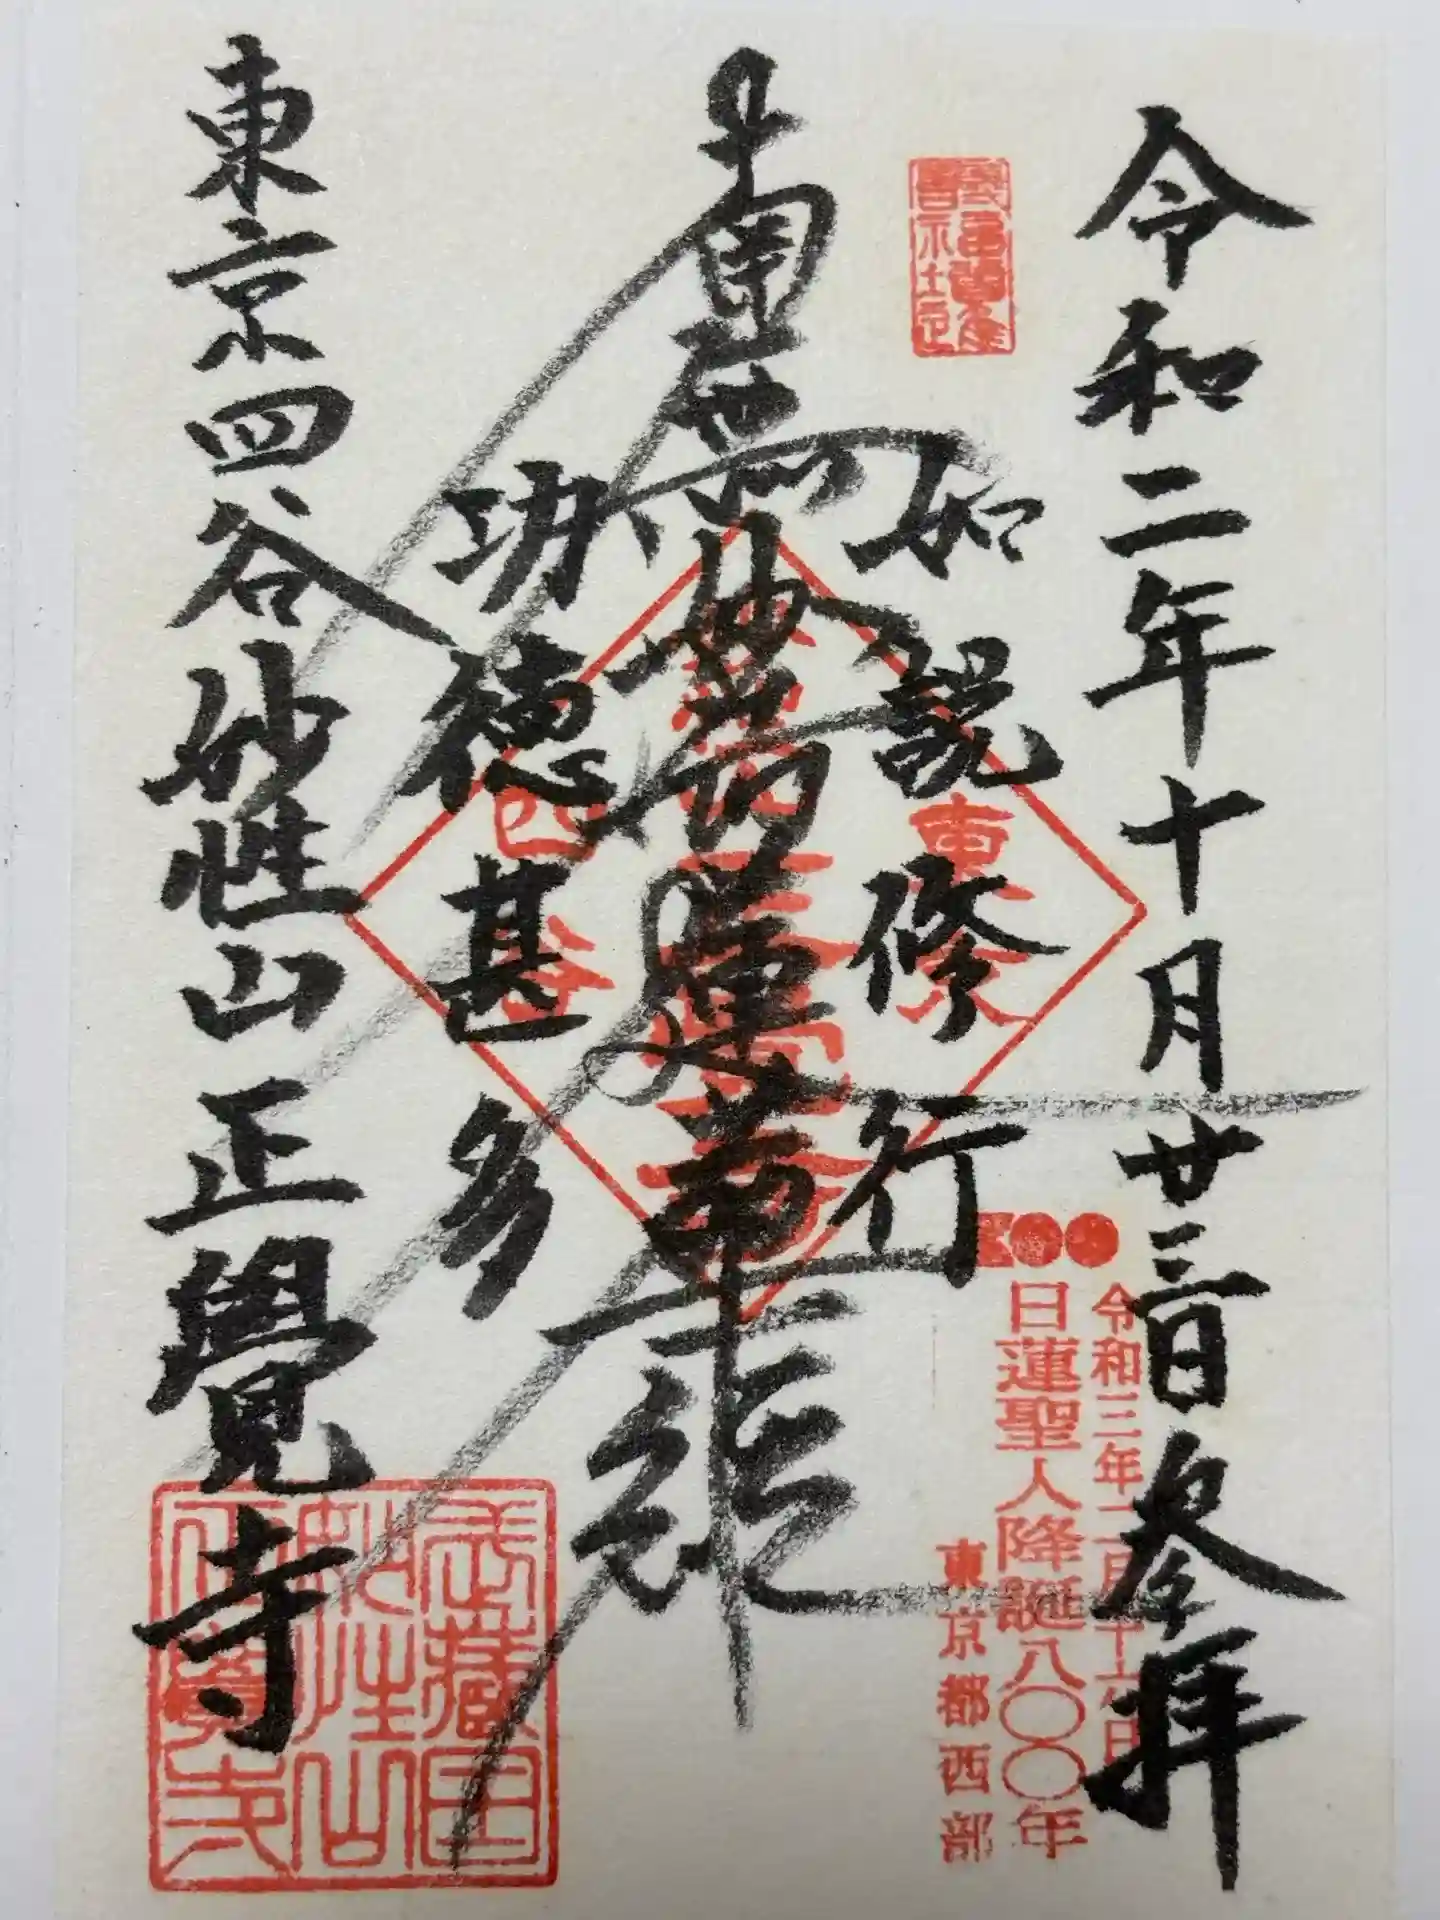 令和二年十月廿三日参拝
如説修行
南無妙法蓮華経
功徳甚多
東京四谷妙性山正覺寺
令和三年二月十六日
日蓮聖人降誕八〇〇年
東京都西部
東京
四谷
武蔵国
妙性山
正覚寺